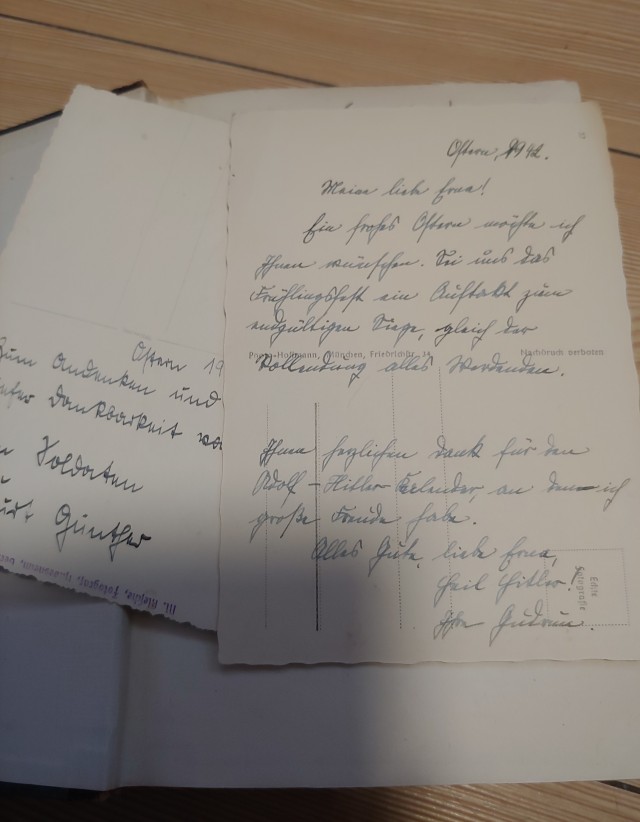 Ostern 19
Zum Andenken und
Dankbarkeit
Soldaten
Günther
Ostern, 1942.
Meine liebe Erna!
Ein frohes Ostern möchte ich
Ihnen wünschen. Sei uns das
Frühlingsfest ein Auftakt zum
endgültigen Siege, gleich der
Photo-Hoffmann, München, Friedrichstr. 34
Nachdruck verboten
Vollendung alles Werdenden.
Ihnen herzlichen Dank für den
Adolf-Hitler Kalender, an dem ich
große Freude habe.
Alles Gute, liebe Erna,
Heil Hitler!
Ihre Gudrun.
Echte
Fotografie